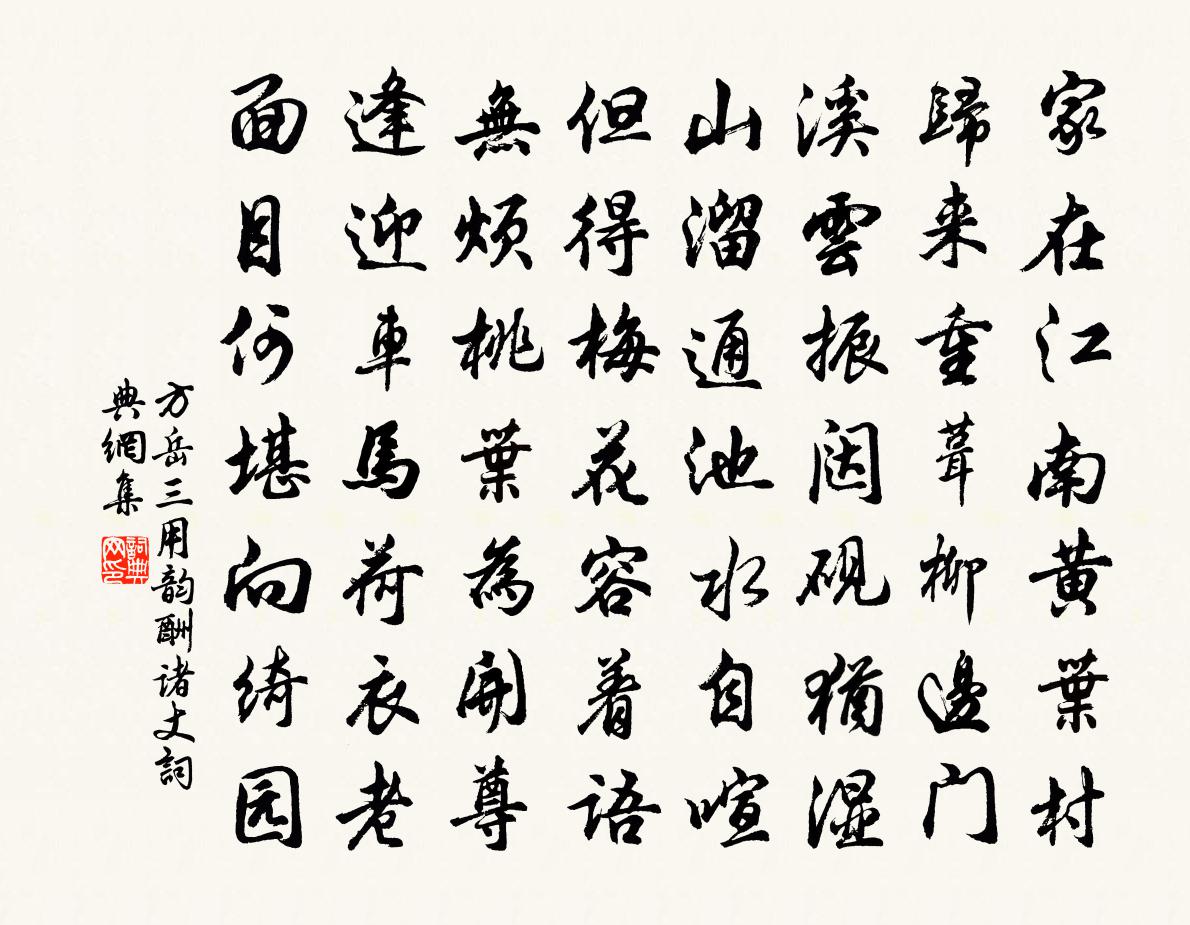 家在江南黄葉村
歸来重葺柳邊门
溪雲振砚猶湿
山溜通池水自喧
但得梅花容着語
無烦桃葉為開尊
逢迎車馬荷衣老
面目何堪向绮园
方岳三用韵酬诸丈詞
典網集
詞典
网印